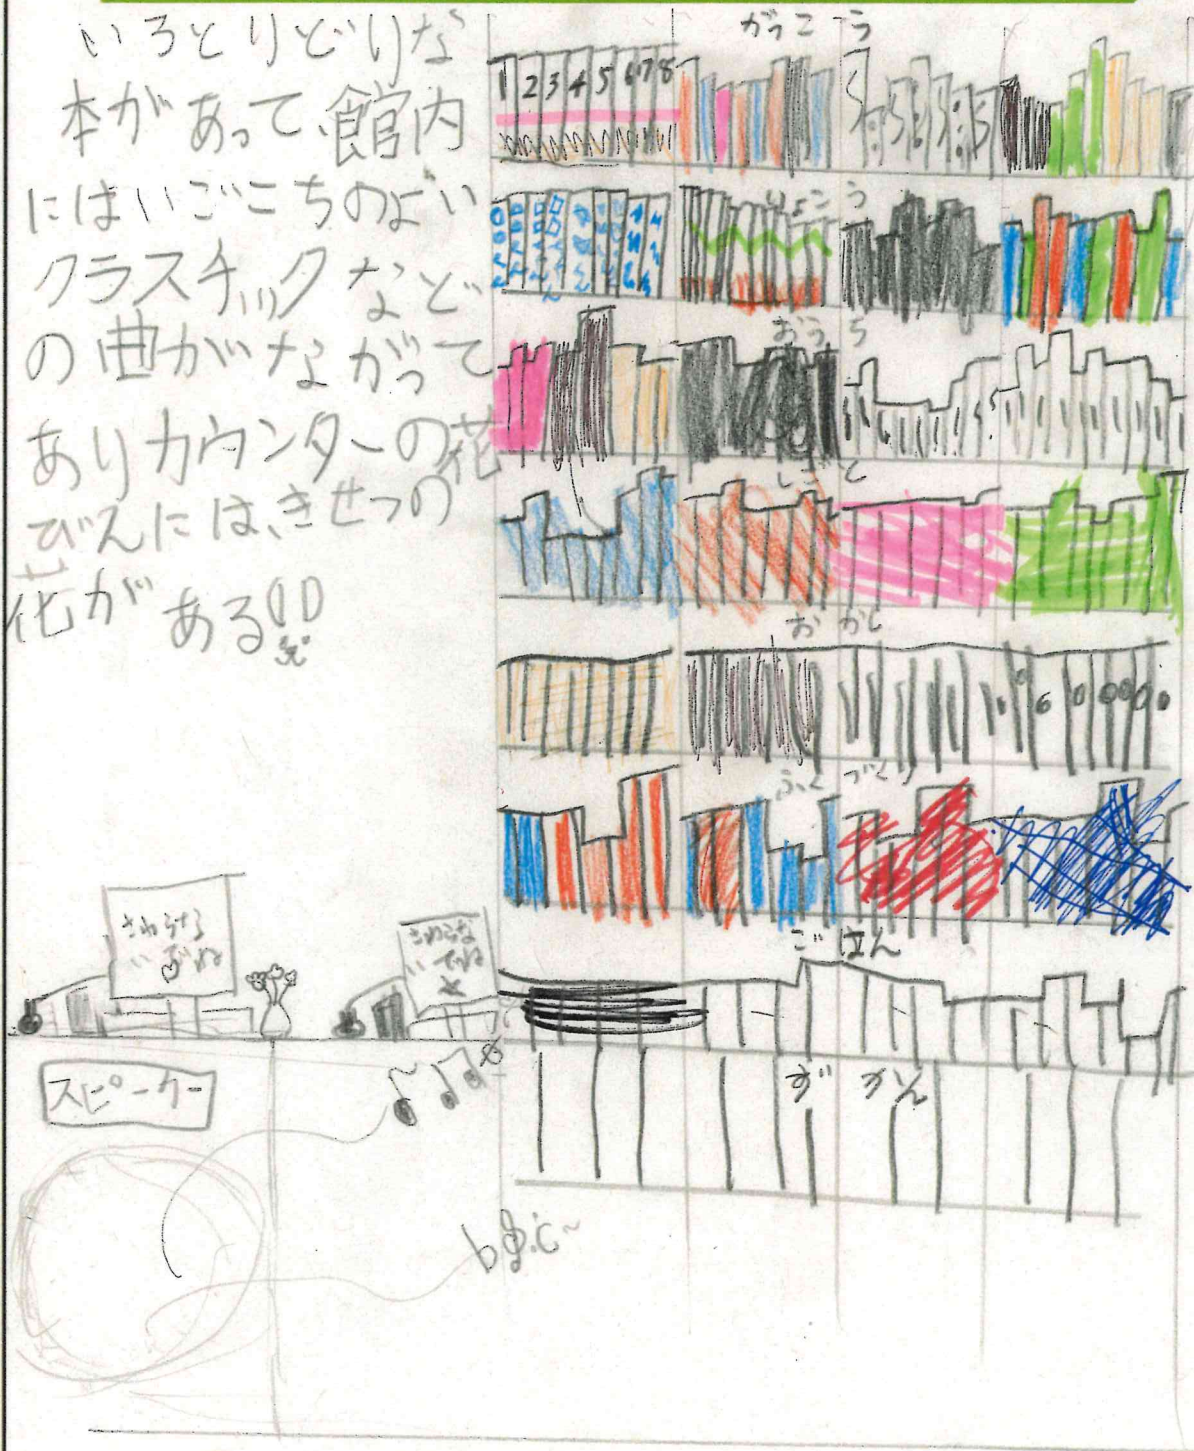 いろとりどりな
本があって、館内
にはいごこちのよい
クラスチックなど
の曲がながって
ありカウンターの花
びんには、きせつの
花がある!!
がっこう
1 2 3 4 5 6 7 8
りょこう
おうち
しごと
おかし
ふくづくり
ごはん
ずかん
さわらな
いでね
さわらな
いでね
スピーカー